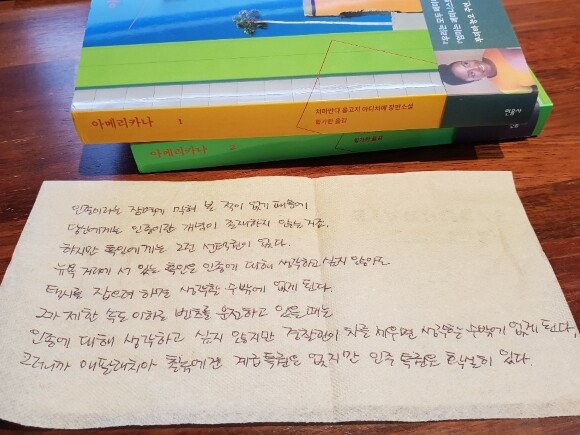 "우리는 모두 페미
아메리카나 1
치마만다 응고지 아디치에 장편소설
황가한 옮김
민음사
아메리카나 2
황가한 옮김
인종이라는 장벽에 막혀 본 적이 없기 때문에
당신에게는 인종이란 개념이 존재하지 않는 거죠.
하지만 흑인에게는 그런 선택권이 없다.
뉴욕 거리에 서 있는 흑인은 인종에 대해 생각하고 싶지 않아도
택시를 잡으려 하면 생각할 수밖에 없게 된다.
그가 제한 속도 이하로 벤츠를 운전하고 있을 때는
인종에 대해 생각하고 싶지 않지만 경찰관이 차를 세우면 생각할 수밖에 없게 된다.
그러니까 애팔래치아 촌놈에겐 계급특권은 없지만 인종 특권은 확실히 있다.